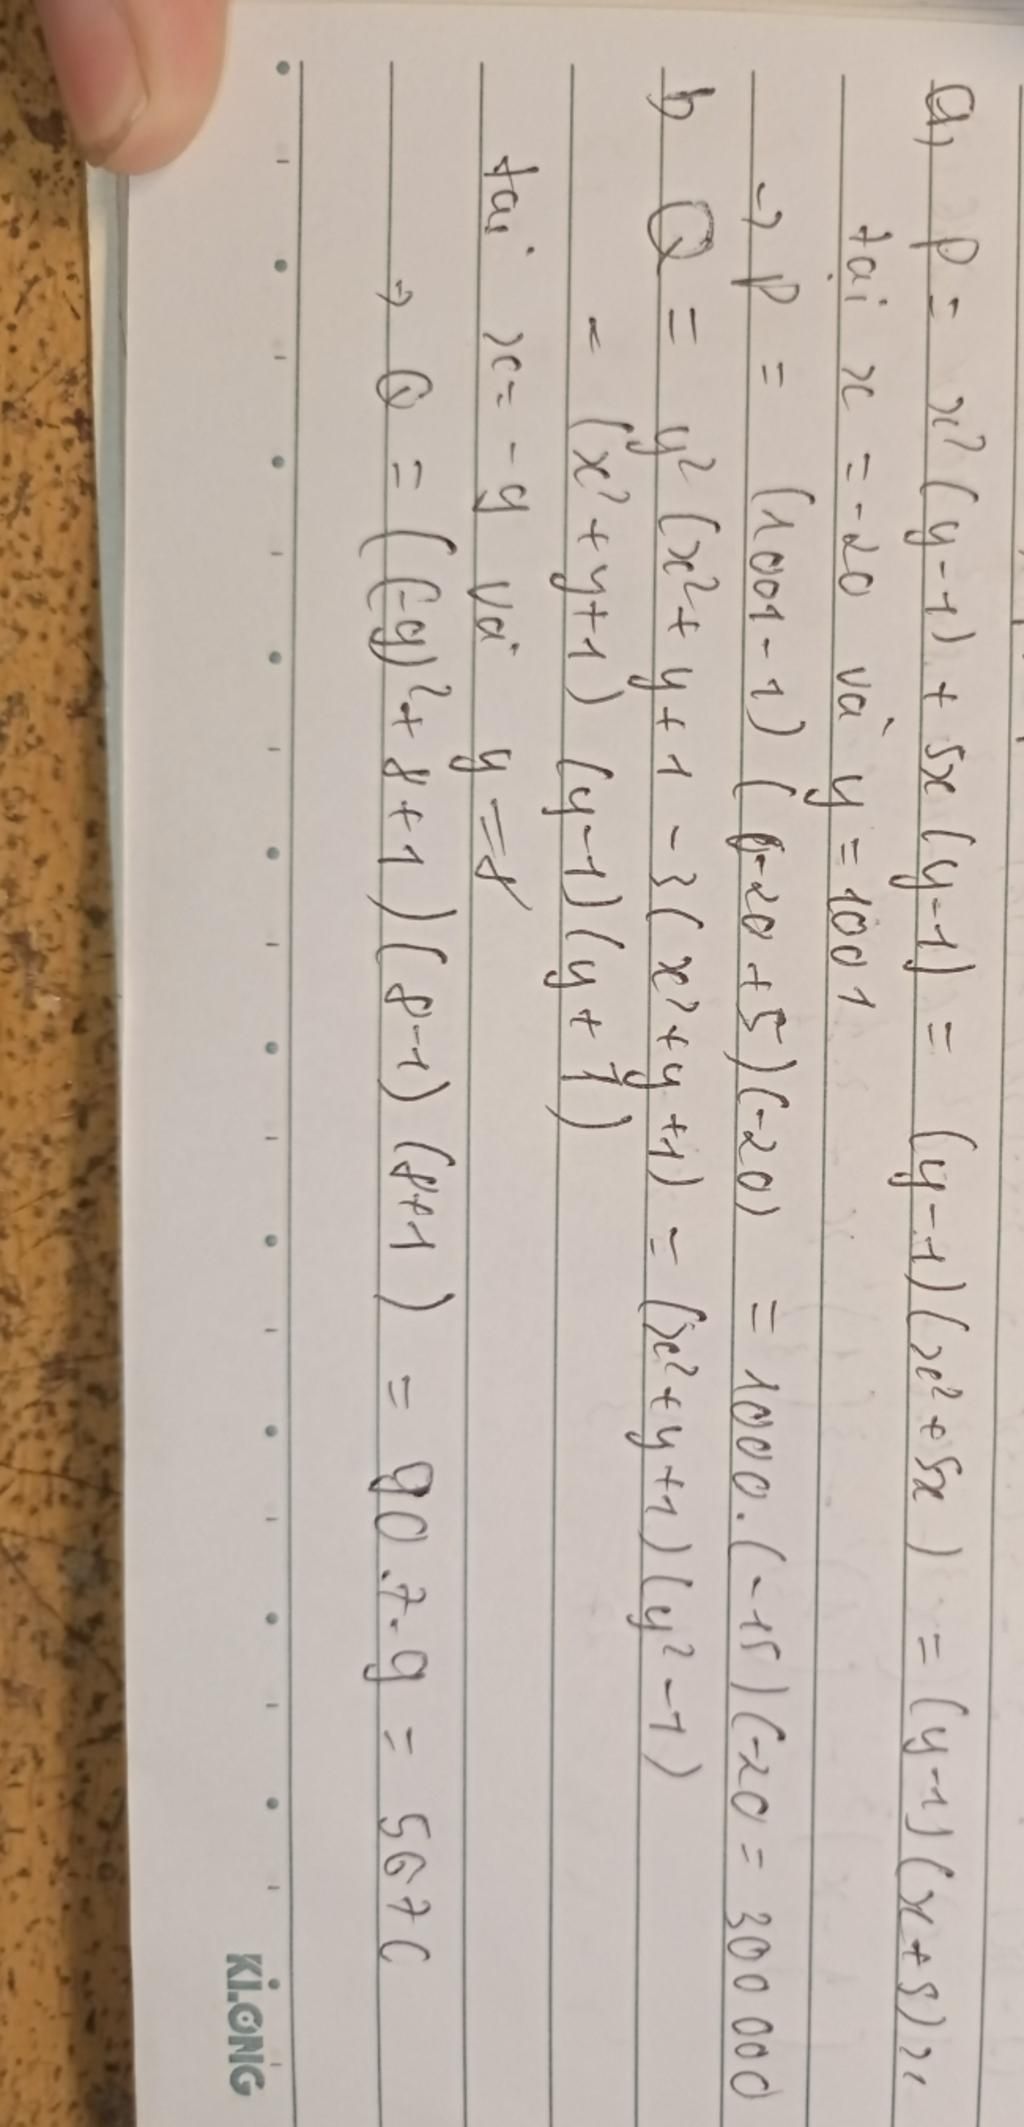 a, P = x² (y-1) + 5x (y-1) = (y-1)(x²+5x) = (y-1)(x+5)x
tại x = -20 và y = 1001
→ P = (1001-1) (-20+5)(-20) = 1000.(-15)(-20 = 300 000
b Q = y² (x²+y+1 - (x²+y+1) = (x²+y+1)(y²-1)
= (x²+y+1) (y-1)(y+1)
tại x = -9 và y = 8
→ Q = ((-9)²+8+1)(8-1)(8+1) = 90.7.9 = 5670
KLONG